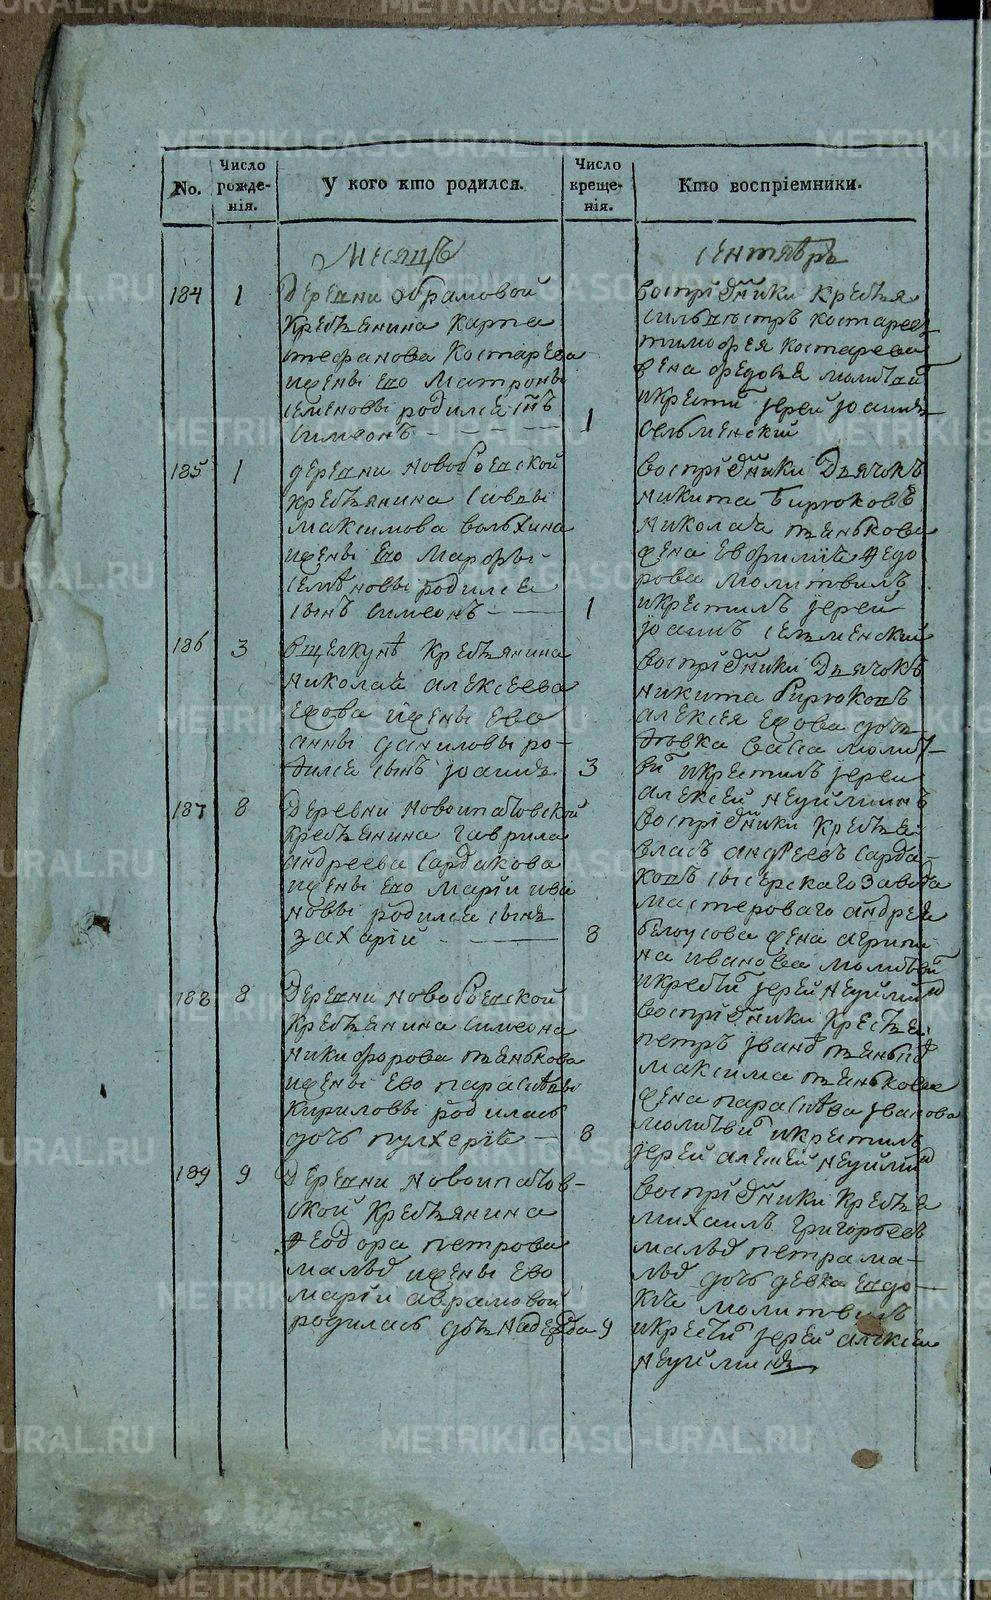 No.
Число рожде-нія.
У кого кто родился.
Число креще-нія.
Кто воспріемники.
Месяцъ
сентябрь
184
1
Деревни Абрамовой
крестьянина Карпа
Стефанова Костарева
и жены его Матроны
Семеновы родился снъ
Симеонъ
1
воспріемники крестья
Сильвестръ Костарев
Тимофея Костарева
жена Федосья молитвил
и крестил іерей Іоаннъ
Сельменский
185
1
деревни Новобоевской
крестьянина Саввы
Максимова Волынина
и жены его Марфы
Семеновы родился
сынъ Симеонъ
1
воспріемники Дьячокъ
Никита Бирюковъ
Николая Пьянькова
жена Евфимия Федо
рова молитвилъ
и крестилъ іерей
Іоаннъ Сельменский
186
3
в Щелкунѣ крестьянина
Николая Алексеева
Ежова и жены ево
Анны Даниловы ро-
дился сынъ Іоаннъ
3
воспріемники Дьячокъ
Никита Бирюковъ
Алексея Ежова дочь
девка Васса молит
вил и крестилъ іереи
Алексей Неуйминъ
187
8
Деревни Новоипатовской
крестьянина Гаврила
Андреева Сардакова
и жены его Марии Ива
новы родился сынъ
Захарій
8
воспріемники крестья
Власъ Андреевъ Сарда-
ковъ Сысерскаго завода
мастероваго Андрея
Белоусова жена Агрипи
на Иванова молитвил
и крестил іерей Неуймин
188
8
Деревни Новобоевской
крестьянина Симеона
Никифорова Пьянькова
и жены ево Парасковьи
Кириловы родилась
дочь Пулхерія
8
воспріемники крестья
Петръ Іванов Пьянков
Максима Пьянькова
жена Парасковья Іванова
молитвил и крестилъ
іерей Алексей Неуймин
189
9
Деревни Новоипатов-
ской крестьянина
Феодора Петрова
Малых и жены ево
Марии Аврамовой
родилась дочь Надежда
9
воспріемники крестья
Михаилъ Григорьев
Малых Петра Ма-
лых дочь девка Евдо-
кия молитвилъ
и крестил іерей Алексей
Неуйминъ